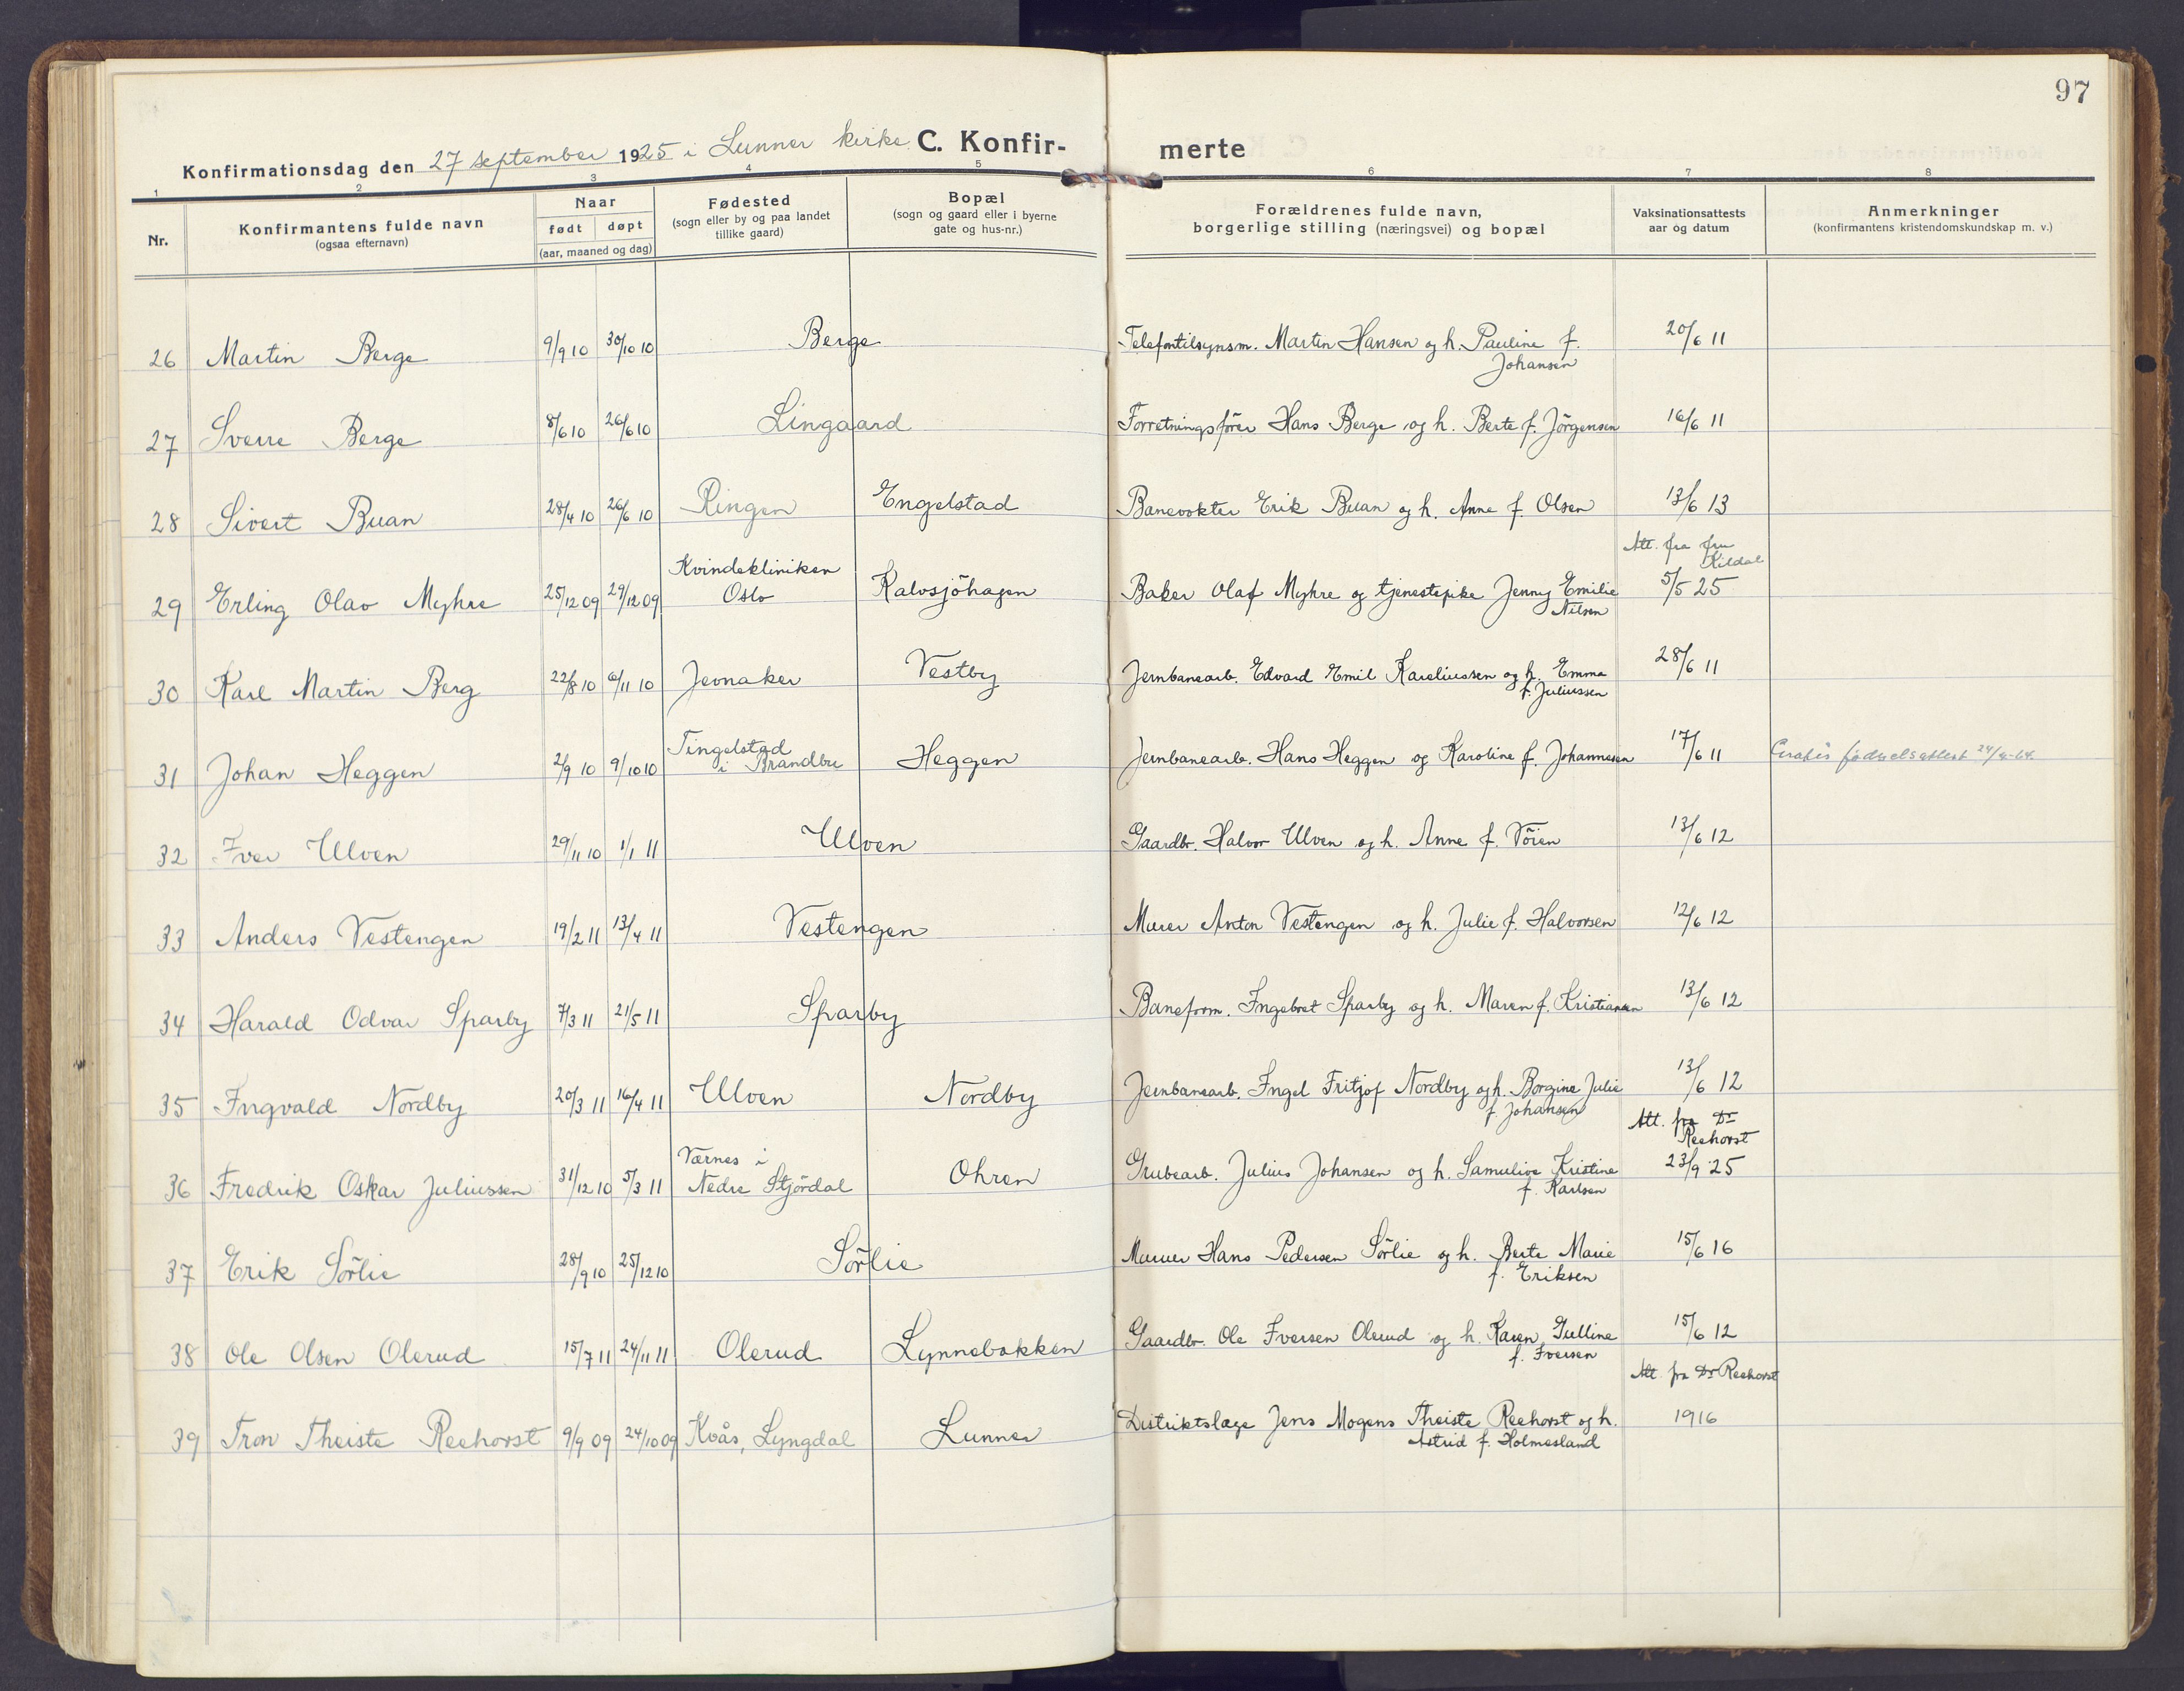 97
Konfirmationsdag den 27 september 1925 i Lunner kirke. C. Konfir- merte
1 2 3 4 5 6 7 8
Nr. Konfirmantens fulde navn (ogsaa efternavn) Naar født døpt (aar, maaned og dag) Fødested (sogn eller by og paa landet tillike gaard) Bopæl (sogn og gaard eller i byerne gate og hus-nr.) Forældrenes fulde navn, borgerlige stilling (næringsvei) og bopæl Vaksinationsattests aar og datum Anmerkninger (konfirmantens kristendomskundskap m. v.)
26 Martin Berge 9/9 10 30/10 10 Berge Telefontilsynsm. Martin Hansen og h. Pauline f. 20/6 11
Johansen
27 Sverre Berge 8/6 10 26/6 10 Lingaard Forretningsfører Hans Berge og h. Berte f. Jörgensen 16/6 11
28 Sivert Buan 28/4 10 26/6 10 Ringen Engelstad Banevokter Erik Buan og h. Anne f. Olsen 13/6 13
Att. fra fru
Kildal
Kvindekliniken
29 Erling Olav Myhre 25/12 09 29/12 09 Oslo Kalvsjöhagen Baker Olaf Myhre og tjenestepike Jenny Emilie 5/5 25
Nilsen
30 Karl Martin Berg 22/8 10 6/11 10 Jevnaker Vestby Jernbanearb. Edvard Emil Kareliussen og h. Emma 28/6 11
f. Juliussen
Tingelstad
31 Johan Heggen 2/9 10 9/10 10 i Brandbu Heggen Jernbanearb. Hans Heggen og Karoline f. Johannesen 17/6 11 Gratis fødselsattest 24/4-64.
32 Iver Ulven 29/11 10 1/1 11 Ulven Gaardbr. Halvor Ulven og h. Anne f. Vöien 13/6 12
33 Anders Vestengen 19/2 11 13/4 11 Vestengen Murer Anton Vestengen og h. Julie f. Halvorsen 12/6 12
34 Harald Odvar Sparby 7/3 11 21/5 11 Sparby Baneform. Ingebret Sparby og h. Maren f. Kristiansen 13/6 12
35 Ingvald Nordby 20/3 11 16/4 11 Ulven Nordby Jernbanearb. Ingel Fritjof Nordby og h. Borgine Julie 13/6 12
f. Johansen
Att. fra Dr
Reehorst
Værnes i
36 Fredrik Oskar Juliussen 31/12 10 5/3 11 Nedre Stjördal Ohren Grubearb. Julius Johansen og h. Samuline Kristine 23/9 25
f. Karlsen
37 Erik Sörlie 28/9 10 25/12 10 Sörlie Murer Hans Pedersen Sörlie og h. Berte Marie 15/6 16
f. Eriksen
38 Ole Olsen Olerud 15/7 11 24/11 11 Olerud Lynnebakken Gaardbr. Ole Iversen Olerud og h. Karen Gulline 15/6 12
f. Iversen
Att. fra Dr Reehorst
39 Tron Theiste Reehorst 9/9 09 24/10 09 Kvås, Lyngdal Lunner Distriktslæge Jens Mogens Theiste Reehorst og h. 1916
Astrid f. Holmesland